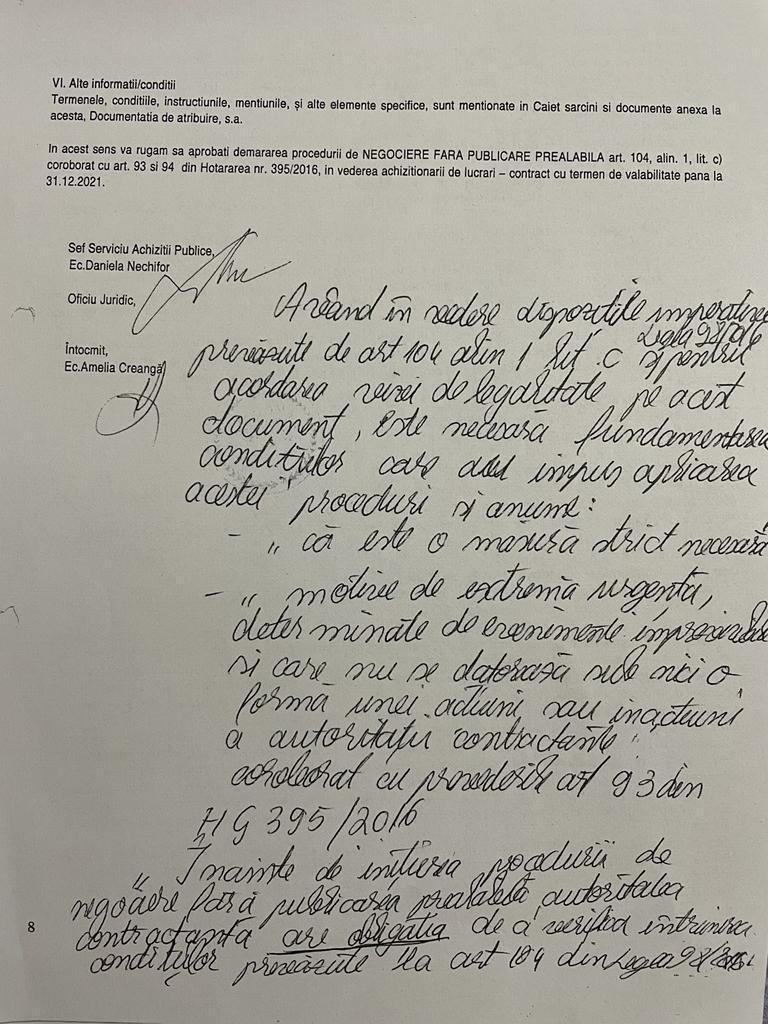 VI. Alte informatii/conditii
Termenele, conditiile, instructiunile, mentiunile, și alte elemente specifice, sunt mentionate in Caiet sarcini si documente anexa la
acesta, Documentatia de atribuire, s.a.
In acest sens va rugam sa aprobati demararea procedurii de NEGOCIERE FARA PUBLICARE PREALABILA art. 104, alin. 1, lit. c)
coroborat cu art. 93 si 94 din Hotararea nr. 395/2016, in vederea achizitionarii de lucrari – contract cu termen de valabilitate pana la
31.12.2021.
Sef Serviciu Achizitii Publice,
Ec.Daniela Nechifor
Oficiu Juridic,
Întocmit,
Ec.Amelia Creangă
Având în vedere dispozițiile imperative
Legea 98/2016
prevăzute de art 104 alin 1 lit. c și pentru
acordarea vizei de legalitate pe acest
document, este necesară fundamentarea
condițiilor care au impus aplicarea
acestei proceduri și anume:
- „ că este o măsură strict necesară
- „ motive de extremă urgență,
determinate de evenimente imprevizibile
și care nu se datorează sub nici o
formă unei acțiuni sau inacțiuni
a autorității contractante "
coroborat cu prevederile art 93 din
HG 395/2016
„ Înainte de inițierea procedurii de
negociere fără publicarea prealabilă autoritatea
contractantă are obligația de a verifica întrunirea
condițiilor prevăzute la art 104 din Legea 98/2016
8